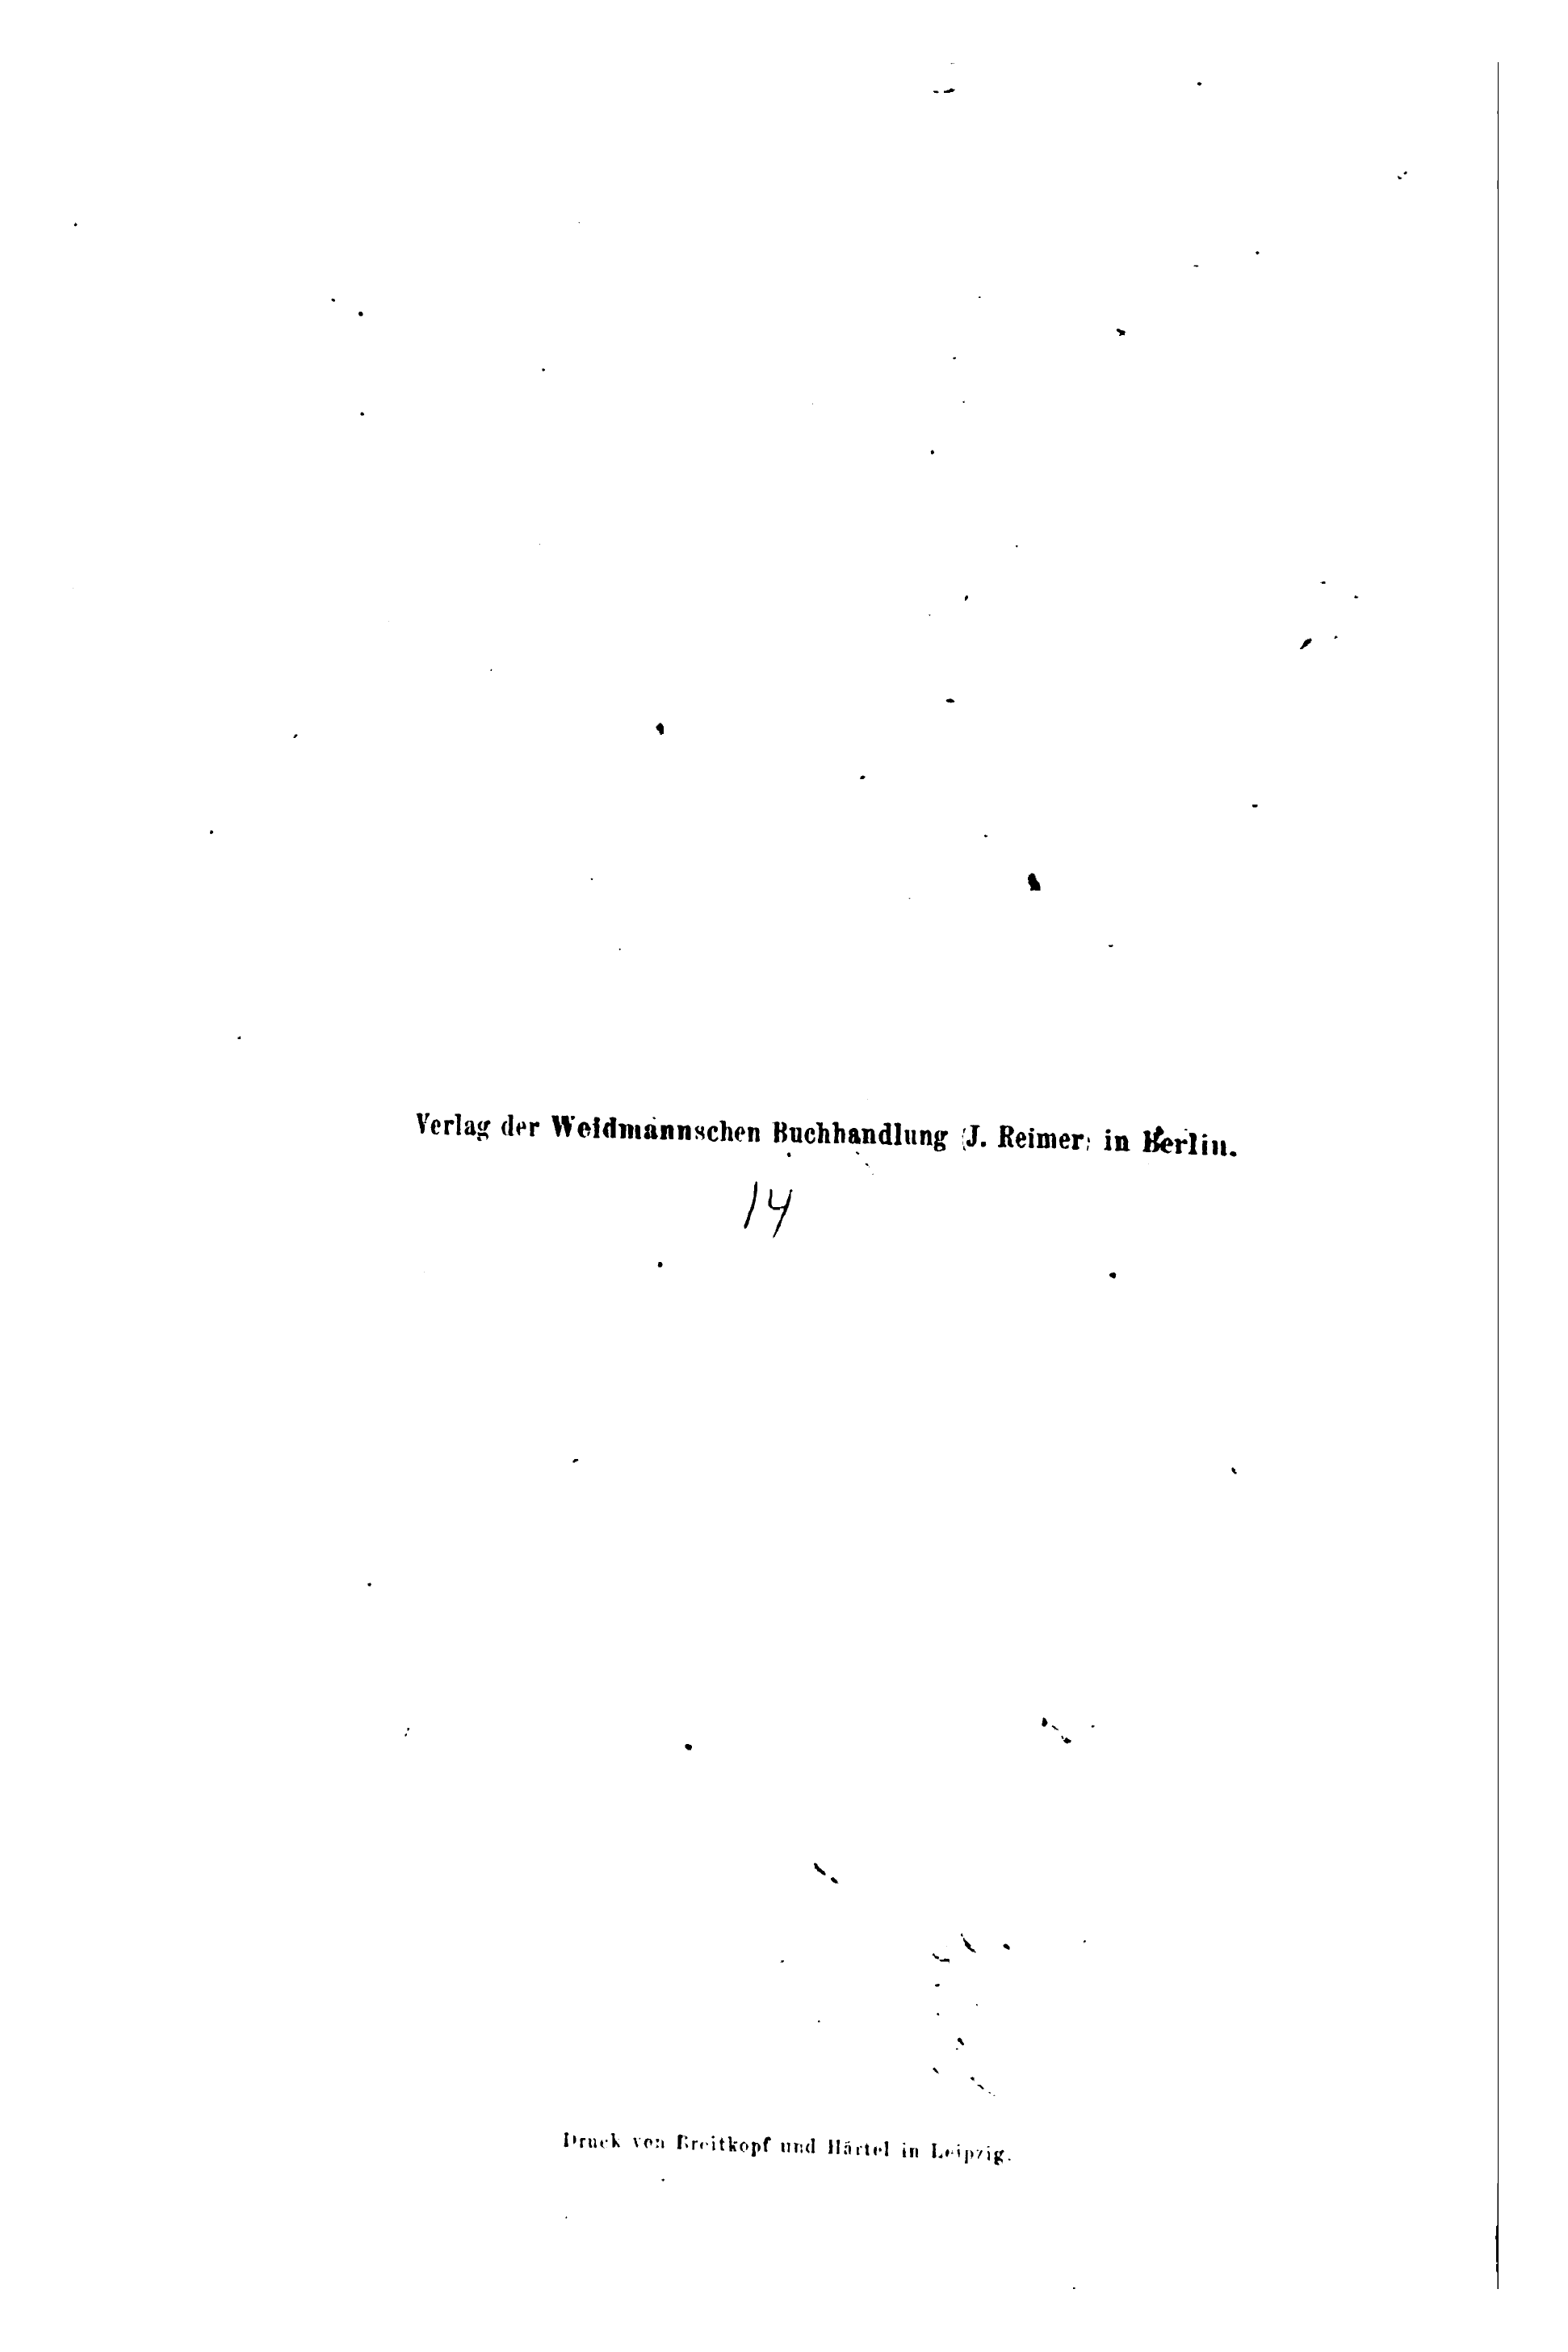 Verlag der Weidmannschen Buchhandlung (J. Reimer) in Berlin.
14
Druck von Breitkopf und Härtel in Leipzig.